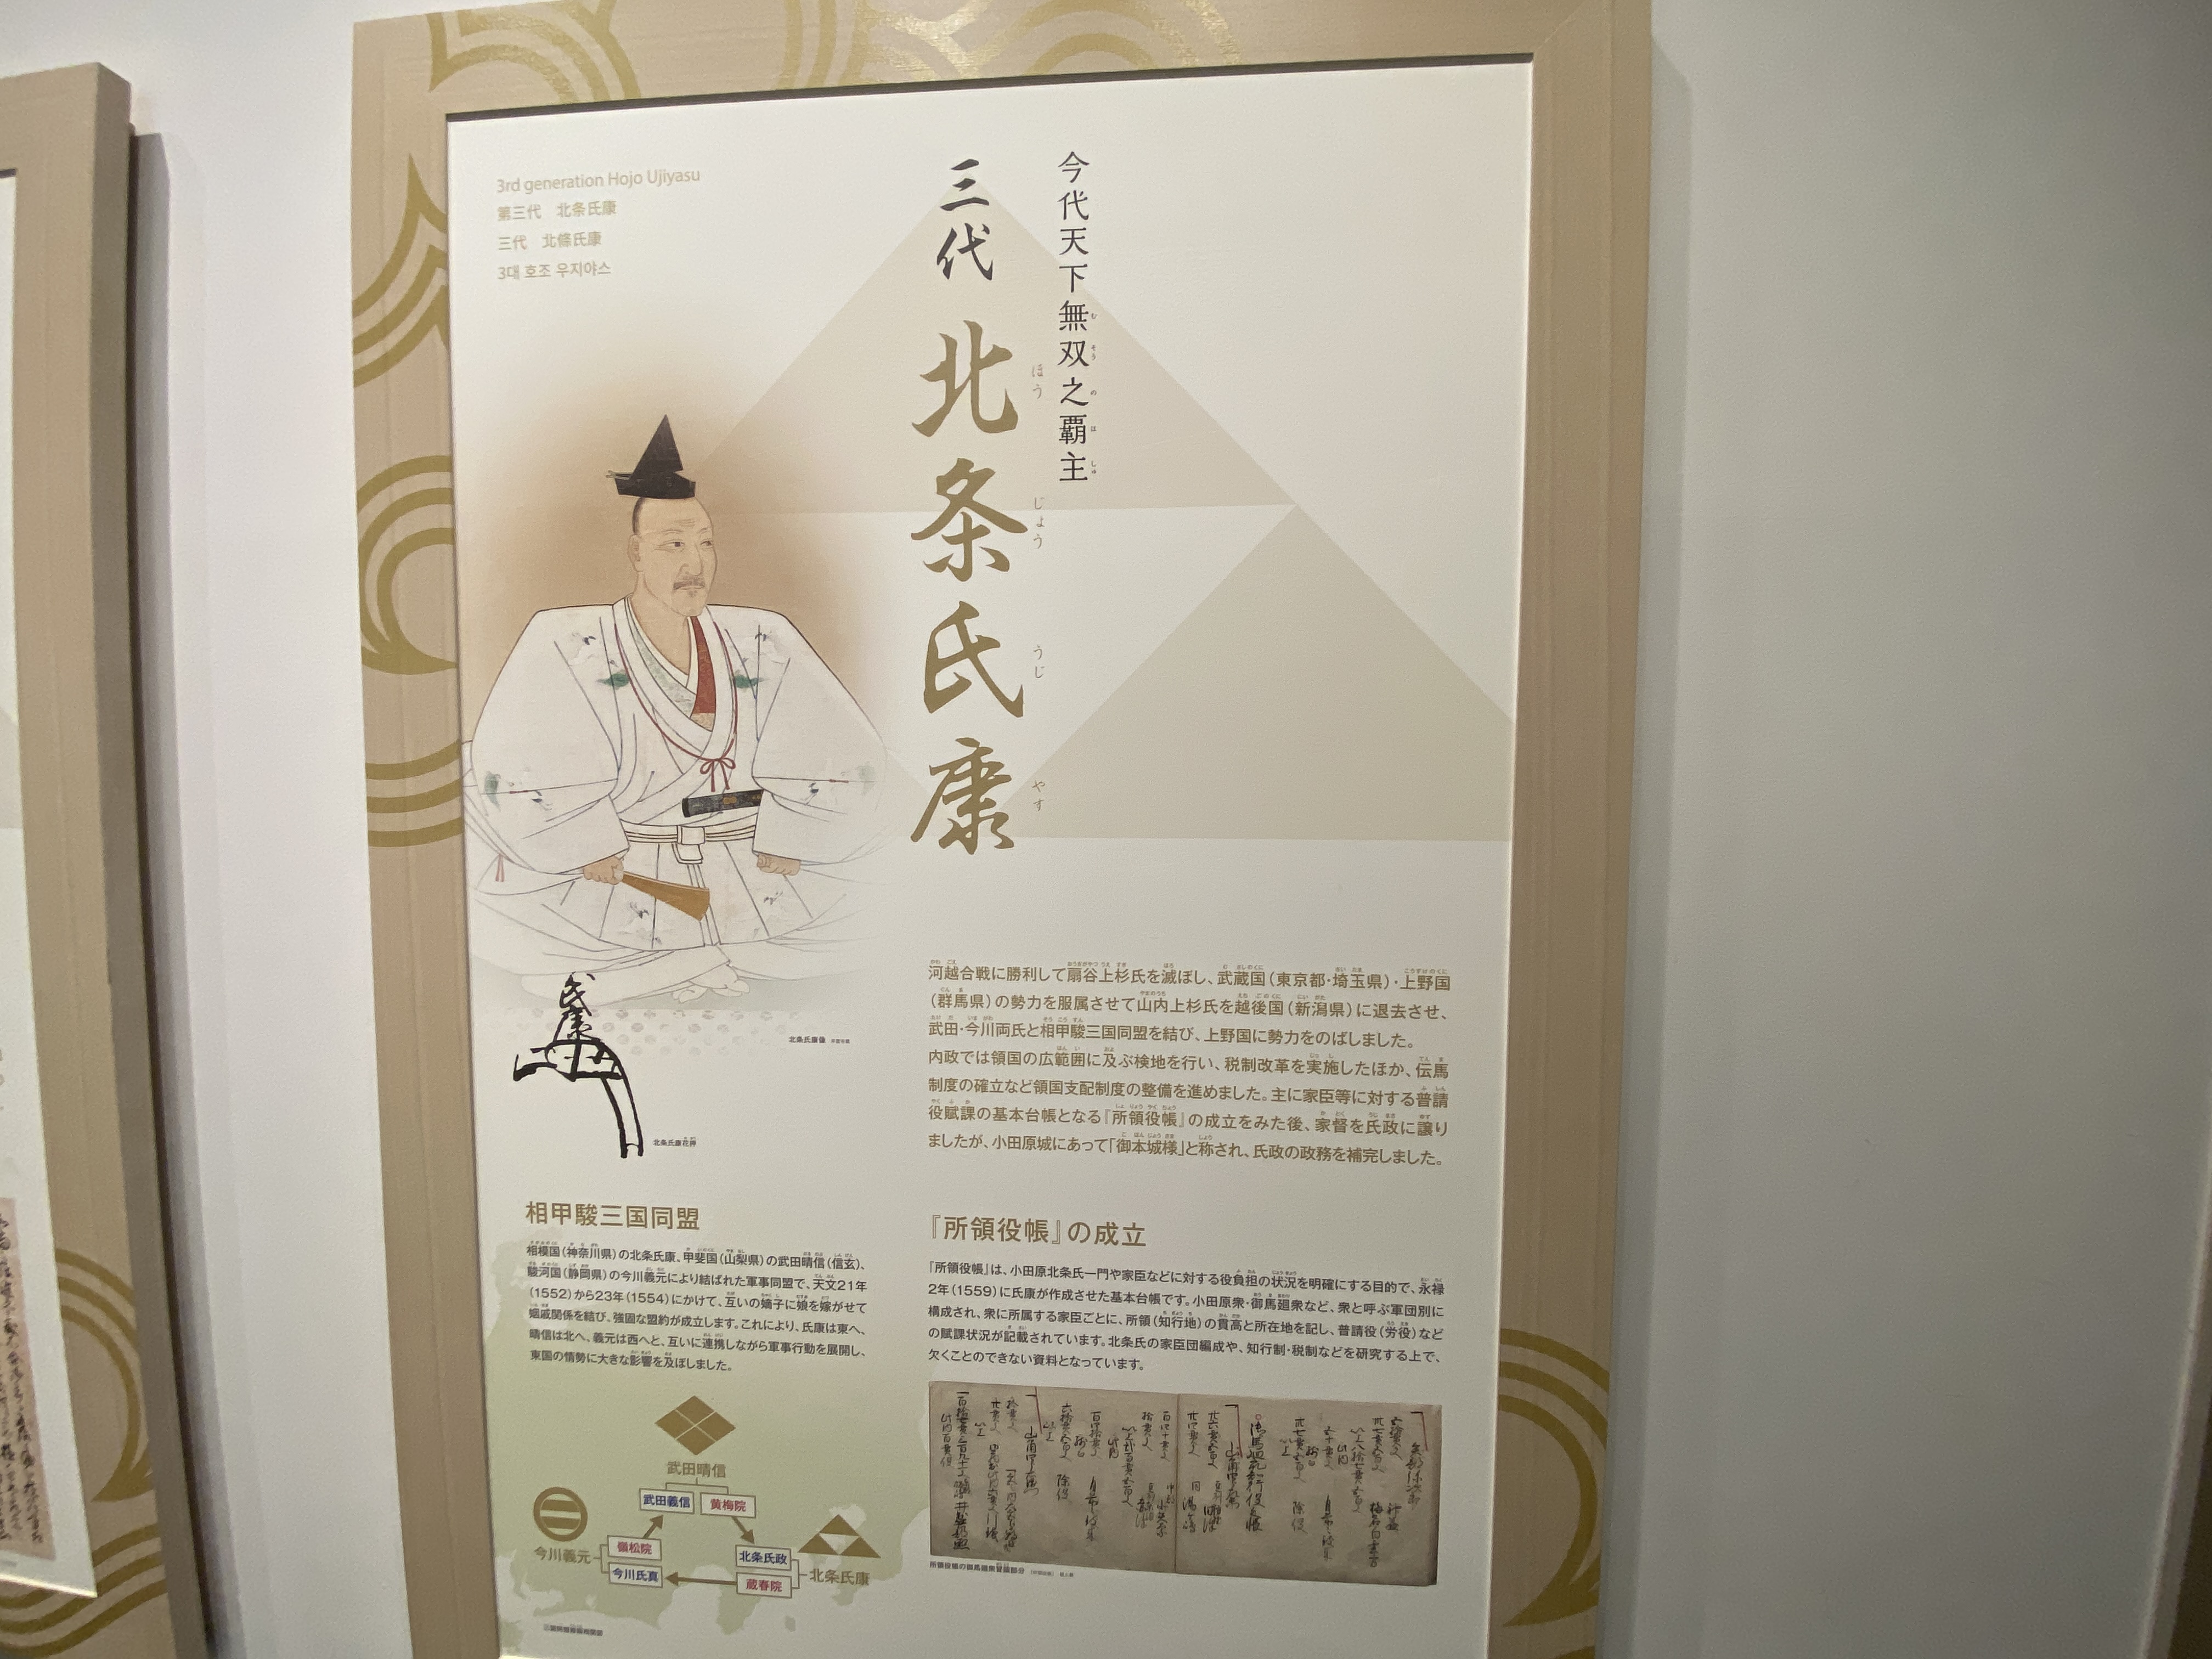 3rd generation Hojo Ujiyasu
第三代　北条氏康
三代　北條氏康
3대 호조 우지야스
今代天下無双之覇主
三代 北条氏康
河越合戦に勝利して扇谷上杉氏を滅ぼし、武蔵国（東京都・埼玉県）・上野国
（群馬県）の勢力を服属させて山内上杉氏を越後国（新潟県）に退去させ、
武田・今川両氏と相甲駿三国同盟を結び、上野国に勢力をのばしました。
内政では領国の広範囲に及ぶ検地を行い、税制改革を実施したほか、伝馬
制度の確立など領国支配制度の整備を進めました。主に家臣等に対する普請
役賦課の基本台帳となる『所領役帳』の成立をみた後、家督を氏政に譲り
ましたが、小田原城にあって「御本城様」と称され、氏政の政務を補完しました。
北条氏康像
北条氏康花押
相甲駿三国同盟
相模国（神奈川県）の北条氏康、甲斐国（山梨県）の武田晴信（信玄）、
駿河国（静岡県）の今川義元により結ばれた軍事同盟で、天文21年
（1552）から23年（1554）にかけて、互いの嫡子に娘を嫁がせて
姻戚関係を結び、強固な盟約が成立します。これにより、氏康は東へ、
晴信は北へ、義元は西へと、互いに連携しながら軍事行動を展開し、
東国の情勢に大きな影響を及ぼしました。
武田晴信
武田義信
黄梅院
今川義元
嶺松院
今川氏真
北条氏政
蔵春院
北条氏康
『所領役帳』の成立
『所領役帳』は、小田原北条氏一門や家臣などに対する役負担の状況を明確にする目的で、永禄
2年（1559）に氏康が作成させた基本台帳です。小田原衆・御馬廻衆など、衆と呼ぶ軍団別に
構成され、衆に所属する家臣ごとに、所領（知行地）の貫高と所在地を記し、普請役（労役）など
の賦課状況が記載されています。北条氏の家臣団編成や、知行制・税制などを研究する上で、
欠くことのできない資料となっています。